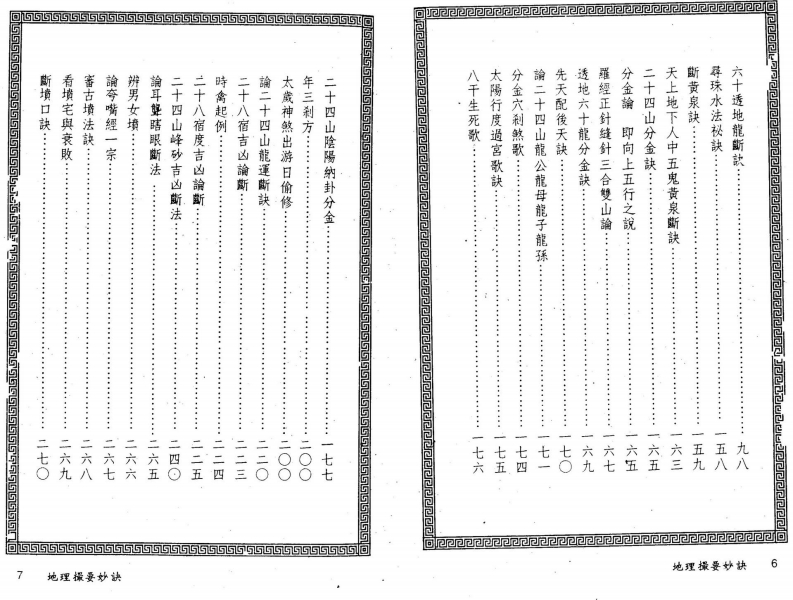 六十透地龍斷訣……九八
尋珠水法祕訣……一五八
斷黃泉訣……一五九
天上地下人中五鬼黃泉斷訣……一六三
二十四山分金訣……一六五
分金論 即向上五行之說……一六五
羅經正針縫針三合雙山論……一六七
透地六十龍分金訣……一六九
先天配後天訣……一七〇
論二十四山龍公龍母龍子龍孫……一七一
分金穴剎煞歌……一七四
太陽行度過宮歌訣……一七五
八干生死歌……一七六
地理撮要妙訣 6
二十四山陰陽納卦分金……一七七
年三剎方……二〇〇
太歲神煞出游日偷修……二〇〇
論二十四山龍運斷訣……二二〇
二十八宿吉凶論斷……二二三
時禽起例……二二四
二十八宿度吉凶論斷……二二五
二十四山峰砂吉凶斷法……二四〇
論耳聾瞎眼斷法……二六五
辨男女墳……二六六
論夸嘴經一宗……二六七
審古墳法訣……二六八
看墳宅與衰敗……二六九
斷墳口訣……二七〇
7 地理撮要妙訣